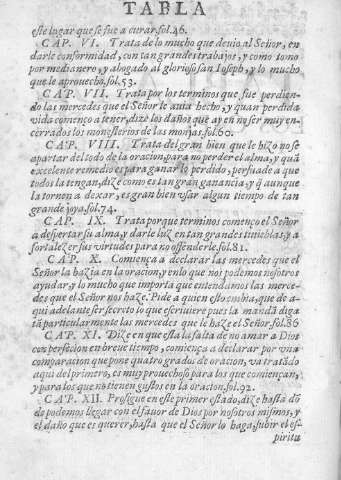 TABLA
este lugar que se fue a curar.fol.46.
CAP. VI. Trata de lo mucho que deuio al Señor, en
darle conformidad, con tan grandes trabajos, y como tomo
por medianero, y abogado al glorioso san Ioseph, y lo mucho
que le aprouecho.fol.53.
CAP. VII. Trata por los terminos que fue perdien-
do las mercedes que el Señor le auia hecho, y quan perdida
vida començo a tener, dize los daños que ay en no ser muy en-
cerrados los monesterios de las monjas.fol.60.
CAP. VIII. Trata del gran bien que le hizo no se
apartar del todo de la oracion, para no perder el alma, y quã
excelente remedio es para ganar lo perdido, persuade a que
todos la tengan, dize como es tan gran ganancia, y q̃ aunque
la tornen a dexar, es gran bien vsar algun tiempo de tan
grande joya.fol.74.
CAP. IX. Trata porque terminos començo el Señor
a despertar su alma, y darle luz en tan grandes tinieblas, y a
fortalezer sus virtudes para no offenderle.fol.81.
CAP. X. Comiença a declarar las mercedes que el
Señor la hazia en la oracion, y en lo que nos podemos nosotros
ayudar, y lo mucho que importa que entendamos las merce-
des que el Señor nos haze. Pide a quien esto embia, que de a-
qui adelante ser secreto lo que escriuiere pues la mandã diga
tã particularmente las mercedes que le haze el Señor.fol.86
CAP. XI. Dize en que està la falta de no amar a Dios
con perfecion en breue tiempo, comiença a declarar por vna
comparacion que pone quatro grados de oracion, va tratãdo
aqui del primero, es muy prouechoso para los que comiençan,
y para los que no tienen gustos en la oracion.fol.92.
CAP. XII. Prosigue en este primer estado, dize hasta dõ
de podemos llegar con el fauor de Dios por nosotros mismos, y
el daño que es querer, hasta que el Señor lo haga, subir el es-
piritu